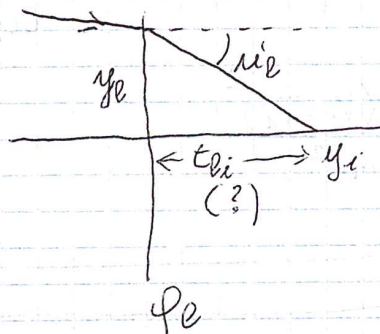 u'e
ye
← tei → yi
(?)
φe